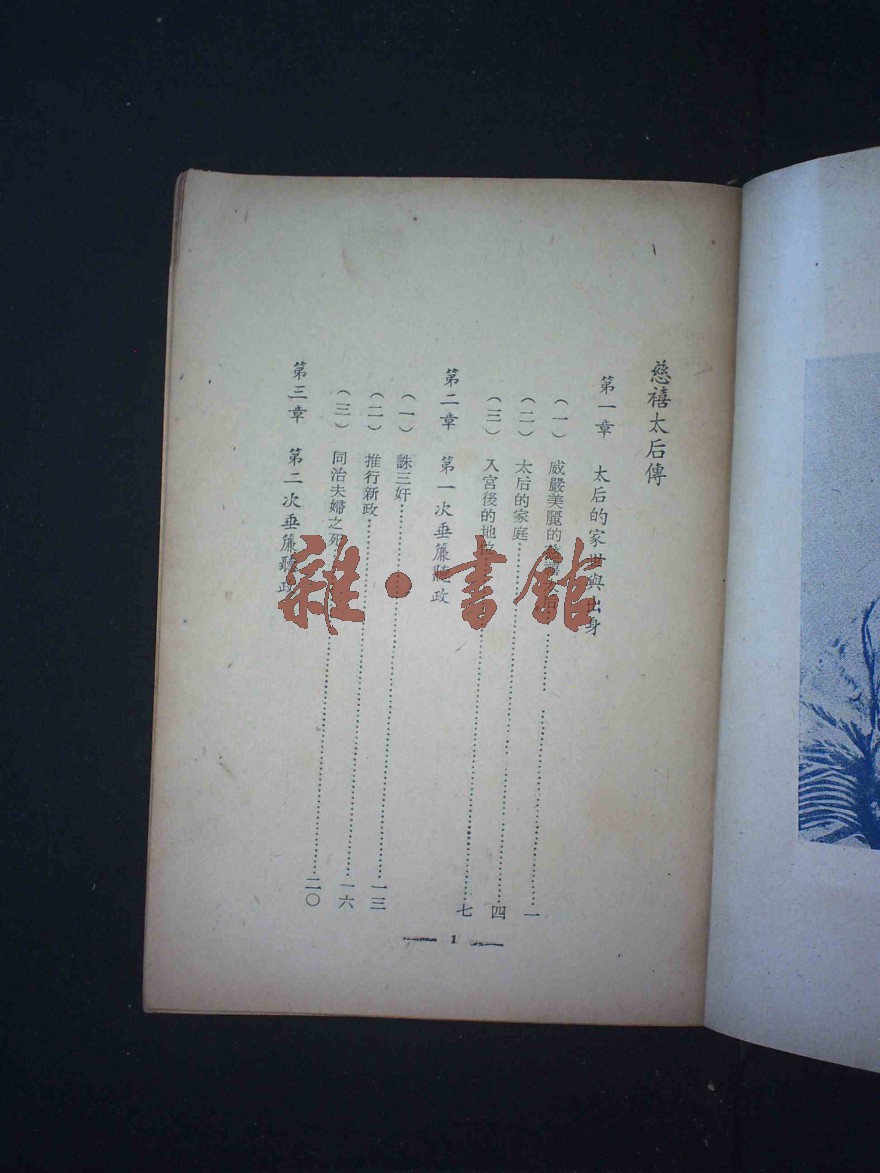 慈禧太后傳
第一章 太后的家世與出身
(一) 威嚴美麗的
(二) 太后的家庭 一
(三) 入宮後的地 四
七
第二章 第一次垂簾聽政
(一) 誅三奸 一三
(二) 推行新政 一六
(三) 同治夫婦之死 二〇
第三章 第二次垂簾聽政
1
雜·書館